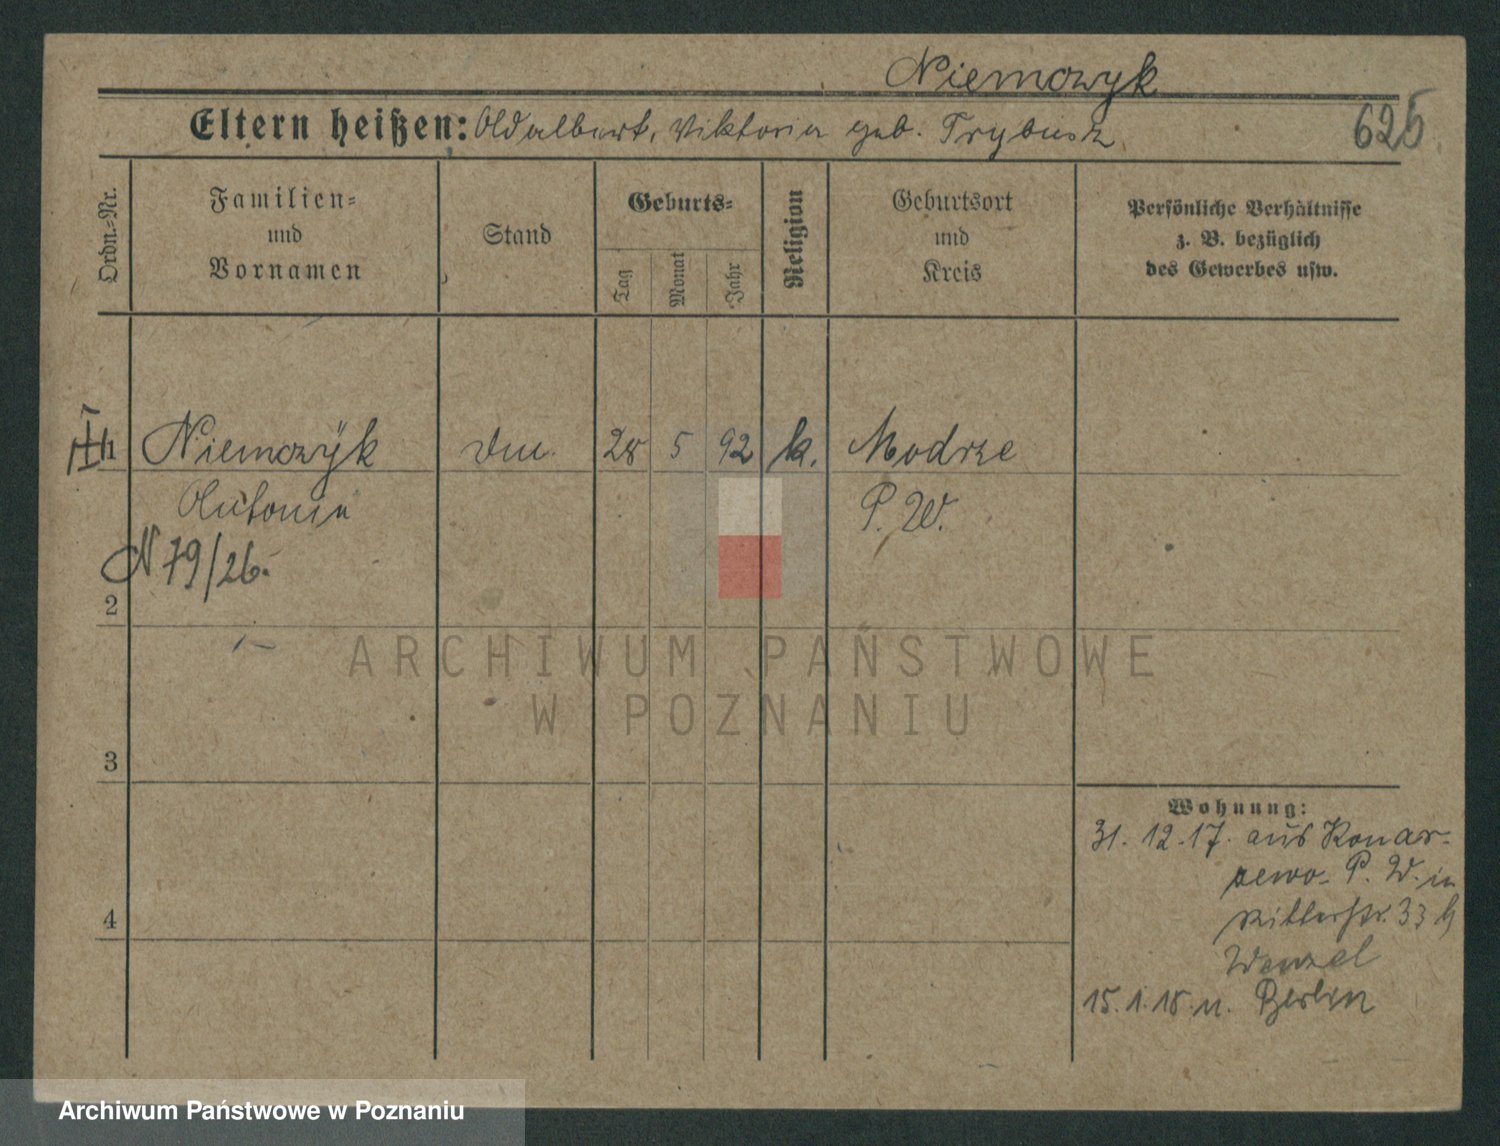 Niemczyk
Eltern heißen: Adalbert, Viktoria geb. Trybusz
625
Ordn.-Nr.
Familien-
und
Vornamen
Stand
Geburts-
Tag
Monat
Jahr
Religion
Geburtsort
und
Kreis
Persönliche Verhältnisse
z. B. bezüglich
des Gewerbes usw.
1 Niemczÿk 28 5 92 k. Modrze
Antonie P. W.
N 79/26.
2
ARCHIWUM PAŃSTWOWE
W POZNANIU
3
Wohnung:
31. 12. 17. aus Konar-
zewo P. W. in
Ritterstr. 33 b
Wenzel
4
15. 1. 18. n. Berlin
Archiwum Państwowe w Poznaniu